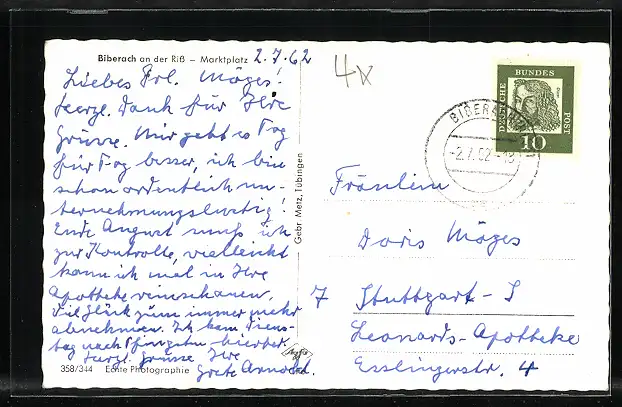 Biberach an der Riß – Marktplatz 2.7.62
Liebes Frl. Möges!
Herzl. Dank für Ihre
Grüsse. Mir geht es Tag
für Tag besser, ich bin
schon ordentlich un-
ternehmungslustig!
Ende August muß ich
zur Kontrolle, vielleicht
kann ich mal in Ihre
Apotheke reinschauen.
Viel Glück zum immer mehr
abnehmen. Ich kam Diens-
tag nach Pfingsten hierher.
Herzl. Grüsse Ihre
Grete Arnold.
358/344 Echte Photographie
Gebr. Metz, Tübingen
4x
DEUTSCHE BUNDES POST
10
BIBERACH
-2.7.62-18
Fräulein
Doris Möges
7 Stuttgart-S
Leonards-Apotheke
Esslingerstr. 4